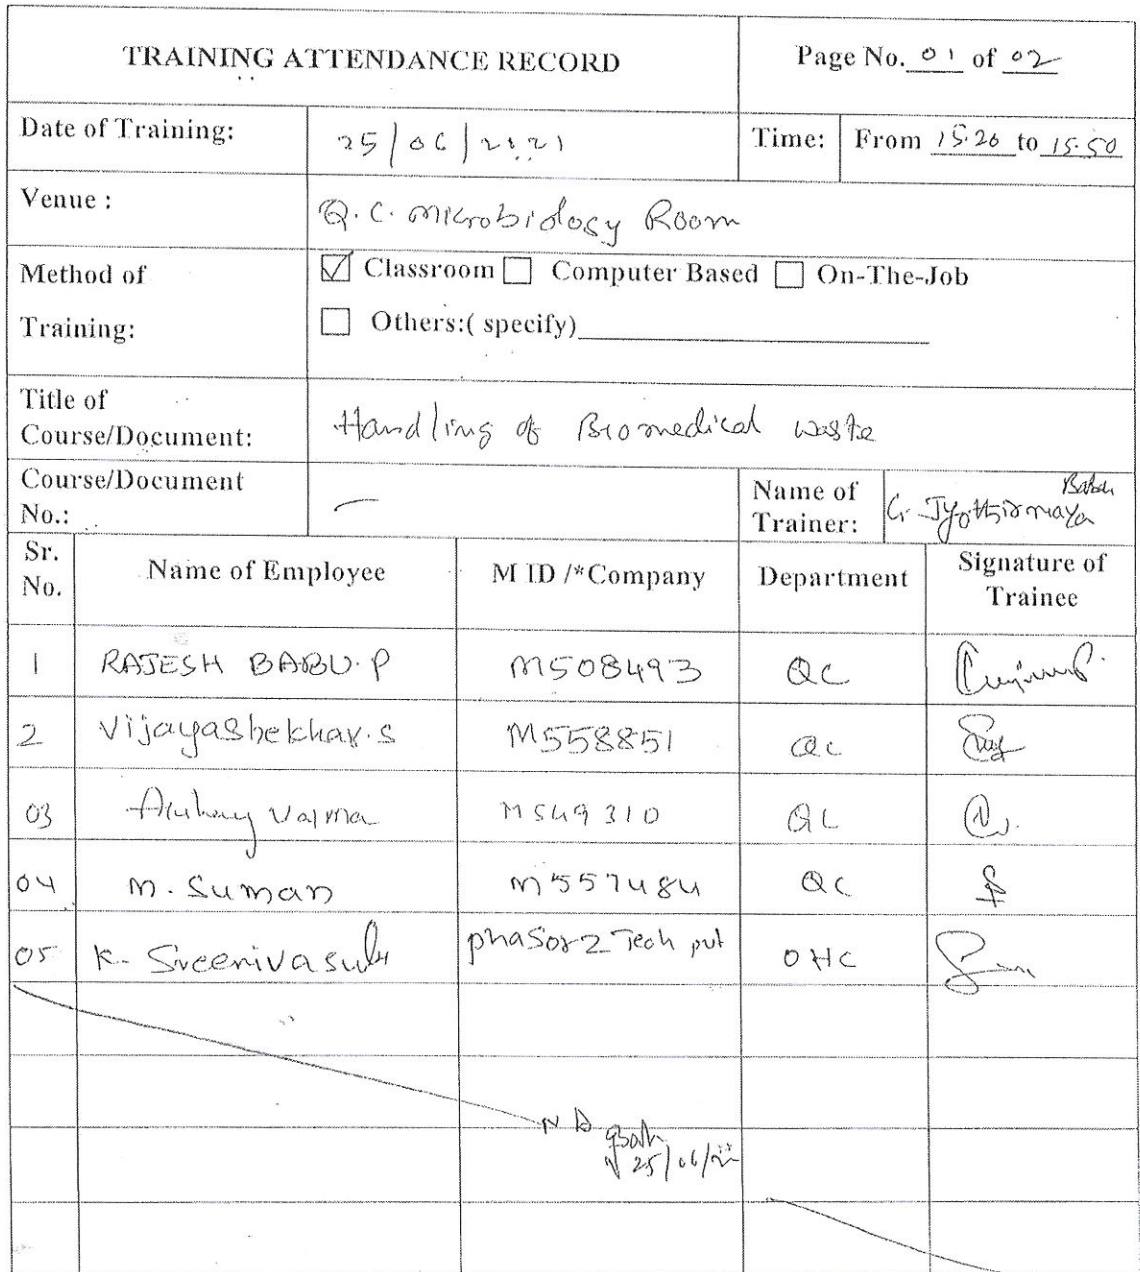 TRAINING ATTENDANCE RECORD
Page No. 01 of 02
Date of Training: 25/06/2021 Time: From 15.20 to 15.50
Venue : Q.C. Microbiology Room
Method of Training:
☑ Classroom ☐ Computer Based ☐ On-The-Job
☐ Others:( specify)
Title of Course/Document: Handling of Biomedical waste
Course/Document No.: — Name of Trainer: G. Jyothirmaya Babu
Sr. No. Name of Employee M ID /*Company Department Signature of Trainee
1 RAJESH BABU.P M508493 QC
2 Vijayashekhar.s M558851 QC
03 Varma M549310 QC
04 M. Suman M557484 QC
05 K. Sreenivasulu phasorz Tech pvt OHC
NA
25/06/